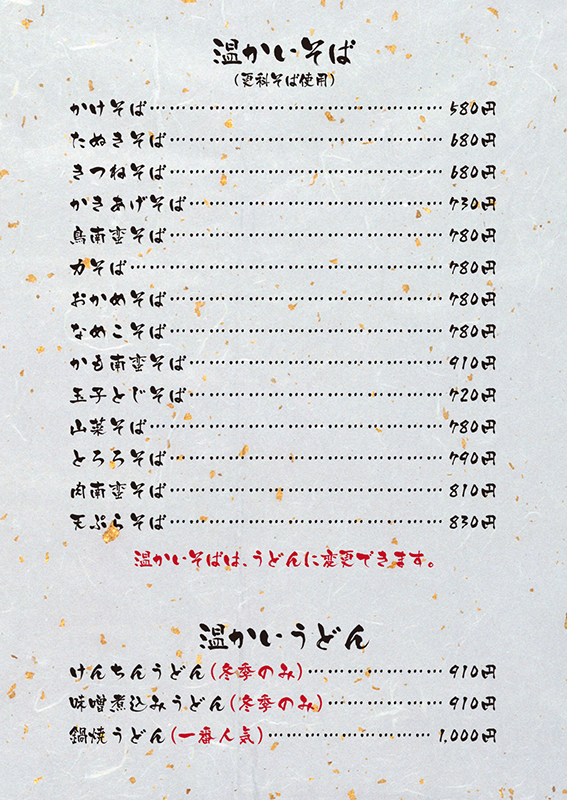 温かいそば
(更科そば使用)
かけそば……………………………… 580円
たぬきそば…………………………… 680円
きつねそば…………………………… 680円
かきあげそば………………………… 730円
鳥南蛮そば…………………………… 780円
力そば………………………………… 780円
おかめそば…………………………… 780円
なめこそば…………………………… 780円
かも南蛮そば………………………… 910円
玉子とじそば………………………… 720円
山菜そば……………………………… 780円
とろろそば…………………………… 790円
肉南蛮そば…………………………… 810円
天ぷらそば…………………………… 830円
温かいそばは、うどんに変更できます。
温かいうどん
けんちんうどん(冬季のみ)…………… 910円
味噌煮込みうどん(冬季のみ)………… 910円
鍋焼うどん(一番人気)……………… 1,000円